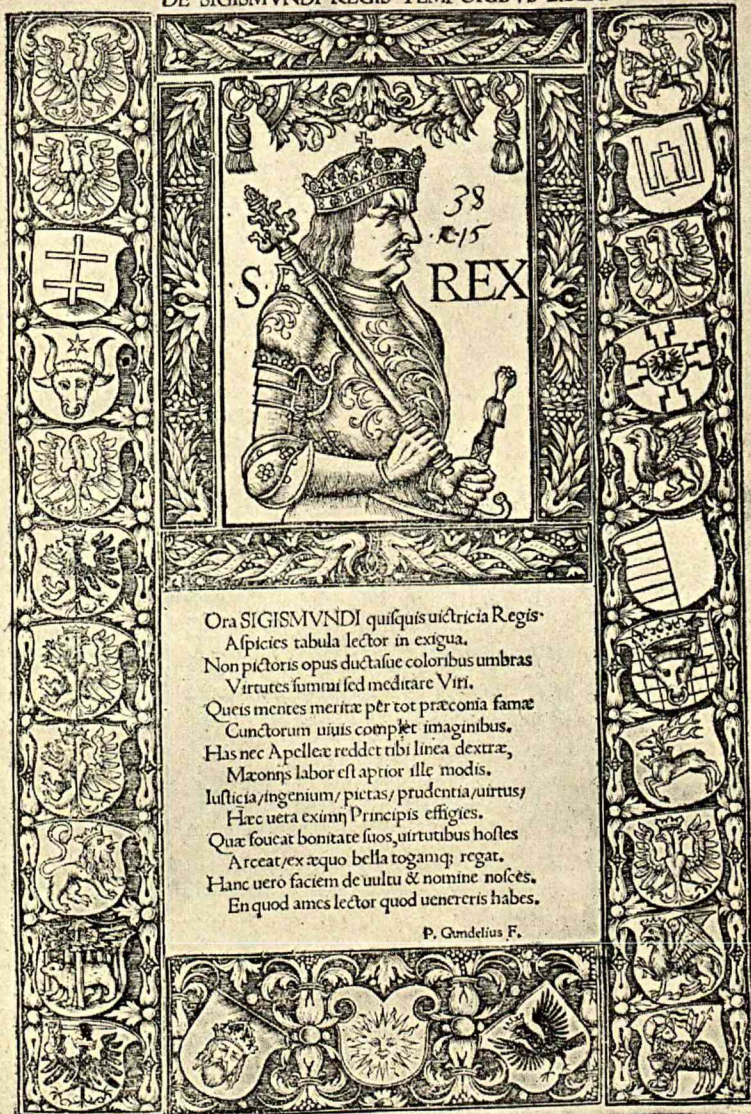 DE SIGISMVNDI REGIS TEMPORIBVS
38
15
S. REX
Ora SIGISMVNDI quiſquis uictricia Regis·
Aſpicies tabula lector in exigua.
Non pictoris opus ductaſue coloribus umbras
Virtutes ſummi ſed meditare Viri.
Queis mentes meritæ per tot præconia famæ
Cunctorum uiuis complet imaginibus.
Has nec Apelleæ reddet tibi linea dextræ,
Mæonijs labor eſt aptior ille modis.
Iuſticia/ingenium/ pietas/ prudentia/uirtus/
Hæc uera eximij Principis effigies.
Quæ foueat bonitate ſuos,uirtutibus hoſtes
Arceat/ex æquo bella togamq; regat.
Hanc uero faciem de uultu & nomine noſces.
En quod ames lector quod uenereris habes.
P. Gundelius F.